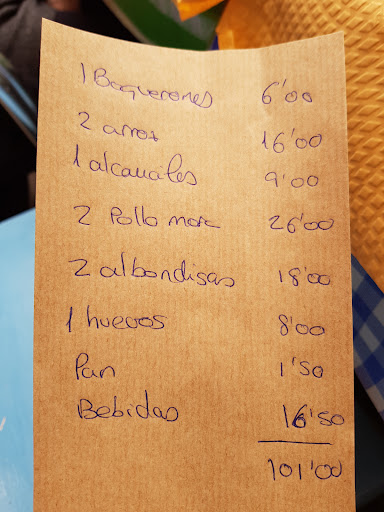 1 Boquerones 6'00
2 arroz 16'00
1 alcauciles 9'00
2 Pollo mar 26'00
2 albondigas 18'00
1 huevos 8'00
Pan 1'50
Bebidas 16'50
101'00